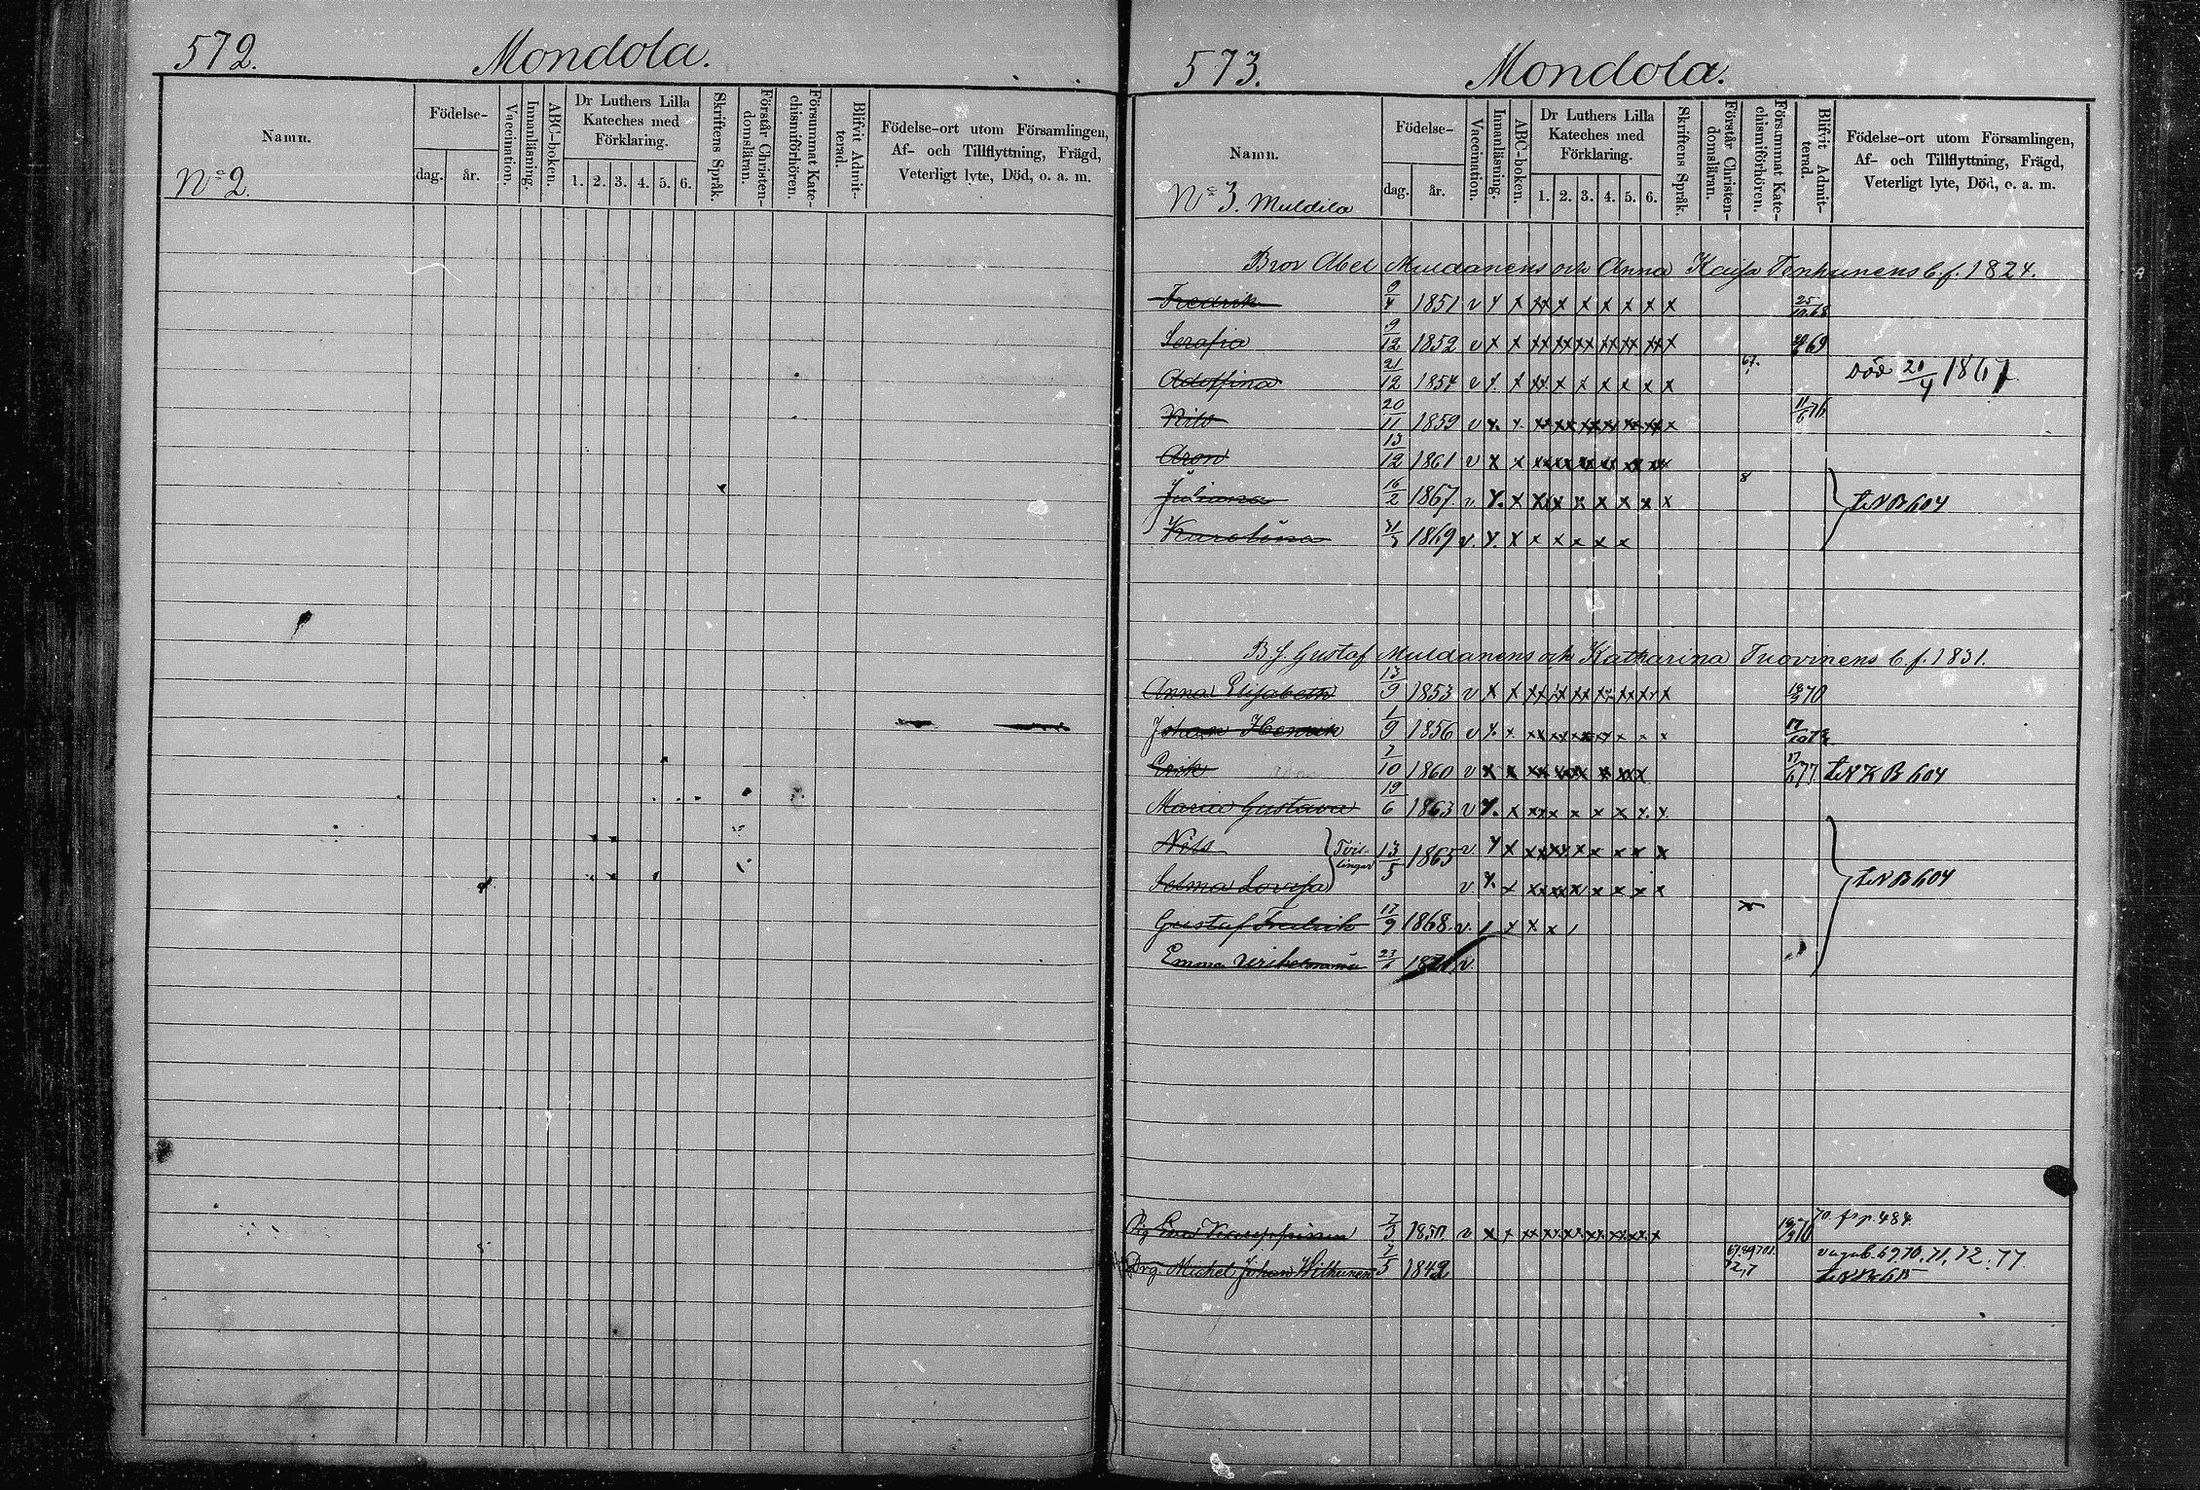 572. Mondola.
Namn.
Födelse-
dag. år.
Vaccination.
Innanläsning.
ABC-boken.
Dr Luthers Lilla
Kateches med
Förklaring.
1. 2. 3. 4. 5. 6.
Skriftens Språk.
Förstår Christen-
domsläran.
Försummat Kate-
chismiförhören.
Blifvit Admit-
terad.
Födelse-ort utom Församlingen,
Af- och Tillflyttning, Frägd,
Veterligt lyte, Död, o. a. m.
No 2.
573. Mondola.
Namn.
Födelse-
dag. år.
Vaccination.
Innanläsning.
ABC-boken.
Dr Luthers Lilla
Kateches med
Förklaring.
1. 2. 3. 4. 5. 6.
Skriftens Språk.
Förstår Christen-
domsläran.
Försummat Kate-
chismiförhören.
Blifvit Admit-
terad.
Födelse-ort utom Församlingen,
Af- och Tillflyttning, Frägd,
Veterligt lyte, Död, o. a. m.
No 3. Muldila
Bror Abel Muldanens och Anna Kaisa Tenhunens b. f. 1824.
Fredrik 9/4 1851 v x x xx x x x x x x 25/10 68
Serafia 9/12 1852 v x x xx xx xx xx xx xx x 69
Adolfina 21/12 1854 v x x xx x x x x x x 67. Död 20/4 1867
Nils 20/11 1859 v x x xx xx xx xx xx xx x 11/6 76
Aron 13/12 1861 v x x xx xx xx xx xx xx
Juliana 16/2 1867 v x x xx x x x x x x 8
B 604
Karolina 1869 v x x x x x x x
B. f. Gustaf Muldanens och Katharina Tuovinens b. f. 1831.
Anna Elisabeth 13/9 1853 v x x xx xx xx xx xx xx x 70
Johan Henrik 1/9 1856 v x x xx xx xx xx x x x
Erik 7/10 1860 v x x xx xx xx x xx x 17/6 77 B 604
Maria Gustava 19/6 1863 v x x xx x x x x x x
Nils } Tvil-
lingar 13/5 1865 v x x xx xx x x x x x
B 604
Selma Lovisa v x x xx xx x x x x x
Gustaf Fredrik 17/9 1868 v / x x x /
Emma Wilhelmina 23/6 1871 v
Kauppinen 7/3 1850 v x x xx xx xx xx xx xx x 70 70. p. 484
Drg. Michel Johan Hilthunen 7/5 1842 vagab. 69, 70, 71, 72, 77